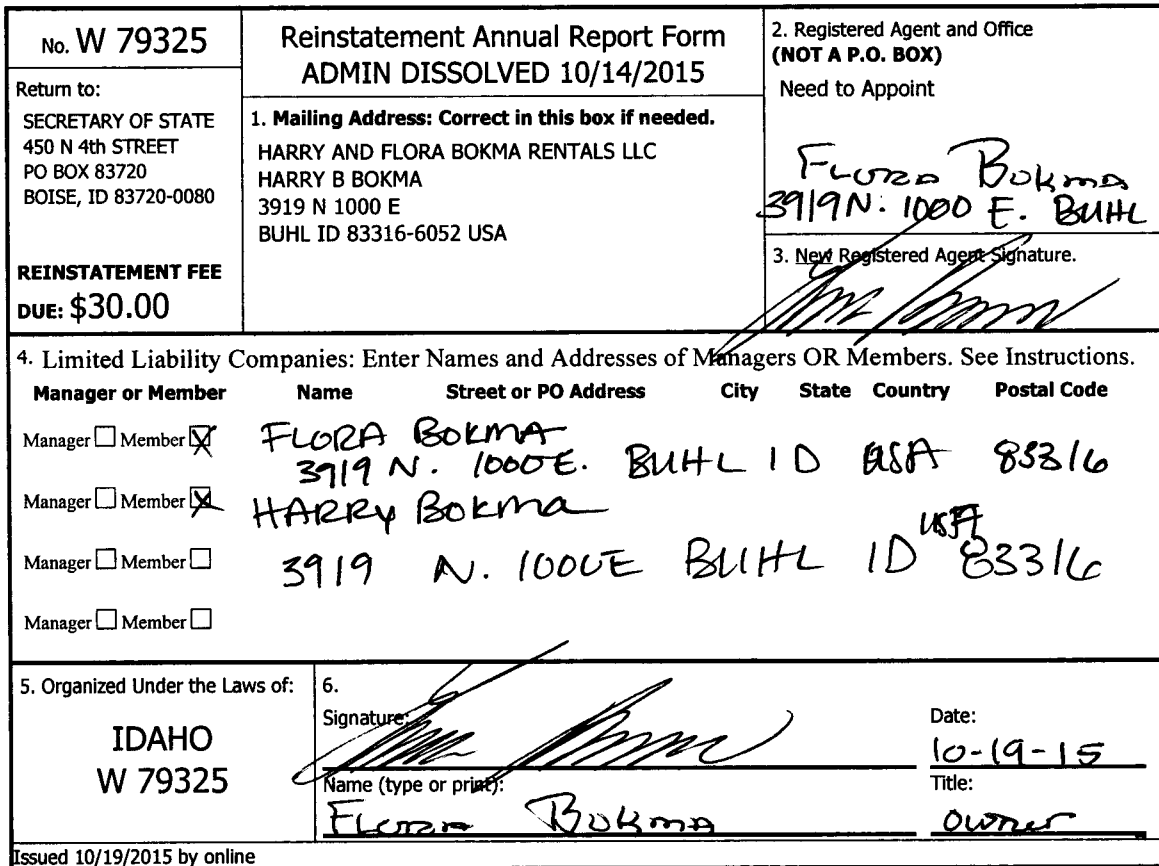 No. W 79325
Return to:
SECRETARY OF STATE
450 N 4th STREET
PO BOX 83720
BOISE, ID 83720-0080
REINSTATEMENT FEE
DUE: $30.00
Reinstatement Annual Report Form
ADMIN DISSOLVED 10/14/2015
1. Mailing Address: Correct in this box if needed.
HARRY AND FLORA BOKMA RENTALS LLC
HARRY B BOKMA
3919 N 1000 E
BUHL ID 83316-6052 USA
2. Registered Agent and Office
(NOT A P.O. BOX)
Need to Appoint
Flora Bokma
3919 N. 1000 E. BUHL
3. New Registered Agent Signature.
4. Limited Liability Companies: Enter Names and Addresses of Managers OR Members. See Instructions.
Manager or Member Name Street or PO Address City State Country Postal Code
Manager Member X FLORA BOKMA
3919 N. 1000 E. BUHL ID USA 83316
Manager Member X HARRY BOKMA
Manager Member 3919 N. 1000 E BUHL ID USA 83316
Manager Member
5. Organized Under the Laws of:
IDAHO
W 79325
6.
Signature:
Date:
10-19-15
Name (type or print):
Flora Bokma
Title:
owner
Issued 10/19/2015 by online